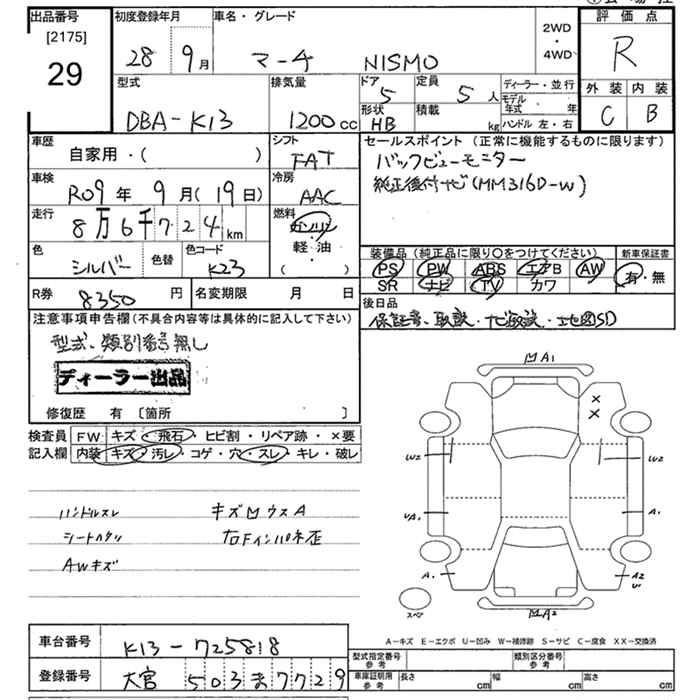 出品番号 初度登録年月 車名・グレード 評価点
[2175]
29
28年 9月 マーチ NISMO 2WD・4WD R
型式 排気量 ドア 定員 ディーラー・並行 外装 内装
DBA-K13 1200cc 5 5人 モデル年式 ・ 年 C B
形状 積載
HB kg ハンドル 左・右
車歴 自家用・( ) シフト FAT
セールスポイント (正常に機能するものに限ります)
バックビューモニター
純正後付ナビ(MM316D-W)
車検 R09年 9月(19日) 冷房 AAC
走行 8万6千724km 燃料 ガソリン
軽・油
( )
色 シルバー 色替 色コード K23
装備品 (純正品に限り○をつけてください) 新車保証書
PS PW ABS エアB AW 有・無
SR ナビ TV カワ
R券 8350円 名変期限 月 日
後日品
保証書、取説・ナビ取説・地図SD
注意事項申告欄(不具合内容等は具体的に記入して下さい)
型式、類別番号無し
ディーラー出品
修復歴 有 〔箇所 〕
検査員 FW キズ・飛石・ヒビ割・リペア跡・×要
記入欄 内装 キズ・汚レ・コゲ・穴・スレ・キレ・破レ
ハンドルスレ キズ凹ウスA
シートヘタリ 右Fインパネ歪
AWキズ
凹A1
×
×
W2 W2
UA1 A1
A1 A2
U
スペア
凹A2
A-キズ E-エクボ U-凹み W-補修跡 S-サビ C-腐食 XX-交換済
車台番号 K13-725818
型式指定番号 参考 類別区分番号 参考
登録番号 大宮 503ま7729
車庫証明用 参考 長さ cm 幅 cm 高さ cm